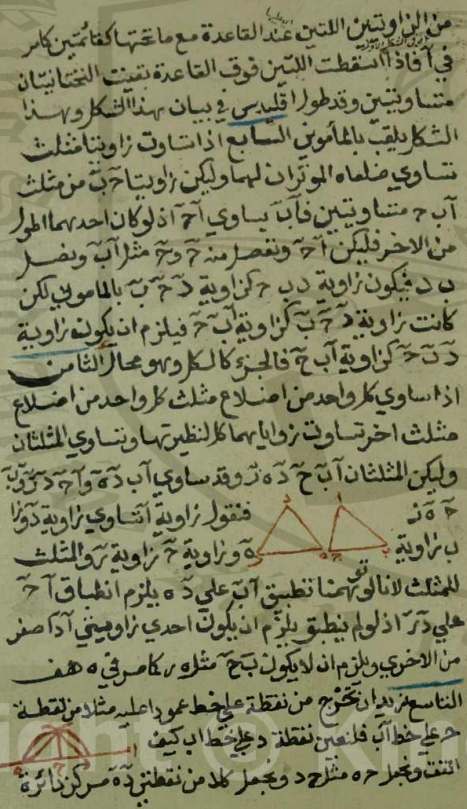 من الزاويتين اللتين عند القاعدة مع ما تحتها كقائمتين كما مر
في فاذا اسقطت اللتين فوق القاعدة بقيت التحتانيتان
متساويتين وقد طول اقليدس في بيان هذا الشكل وهذا
الشكل يلقب بالمأموني السابع اذا تساوت زاويتا مثلث
تساوي ضلعاه الموتران لهما وليكن زاويتا ح ب من مثلث
آب ح متساويتين فآب يساوي آح اذ لو كان احدهما اطول
من الاخر فليكن آح ونفصل منه ح د مثل آب ونصل
ب د فيكون زاوية د ب ح كزاوية د ح ب بالمأموني لكن
كانت زاوية د ح ب كزاوية آب ح فيلزم ان يكون زاوية
د ب ح كزاوية آب ح فالجزء كالكل وهو محال الثامن
اذا ساوي كل واحد من اضلاع مثلث كل واحد من اضلاع
مثلث اخر تساوت زواياهما كل لنظيرتها وتساوي المثلثان
وليكن المثلثان آب ح د ه ز وقد ساوي آب د ه وآح د ز وب
ح ه ز فنقول زاوية آ تساوي زاوية د وزا
ب زاوية ه وزاوية ح زاوية ز والمثلث
للمثلث لانا لو توهمنا تطبيق آب علي د ه يلزم انطباق آح
علي د ز اذ لو لم ينطبق يلزم ان يكون احدي زاويتي آ د اصغر
من الاخري ويلزم ان لا يكون ب ح مثل ه ز كما مر في ه هف
التاسع نريد ان نخرج من نقطة علي خط عمودا عليه مثلا من نقطة
ح علي خط آب فلنعين نقطة د علي خط اب كيف
اتفقت ونجعل ح ه مثل ح د ونجعل كلا من نقطتي د ه مركز دائرة